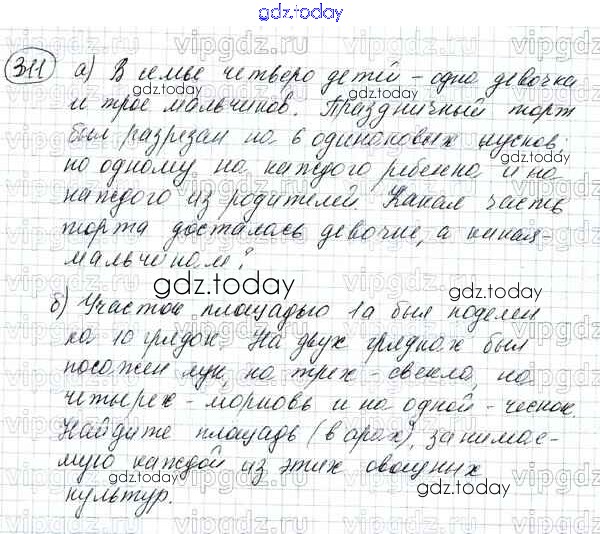 gdz.today
311 а) В семье четверо детей - одна девочка
и трое мальчиков. Праздничный торт
был разрезан на 6 одинаковых кусков:
по одному на каждого ребенка и на
каждого из родителей. Какая часть
торта досталась девочке, а какая -
мальчикам?
gdz.today
б) Участок площадью 1а был поделен
на 10 грядок. На двух грядках был
посажен лук, на трех - свекла, на
четырех - морковь и на одной - чеснок.
Найдите площадь (в арах), занимае-
мую каждой из этих овощных
культур.
gdz.today